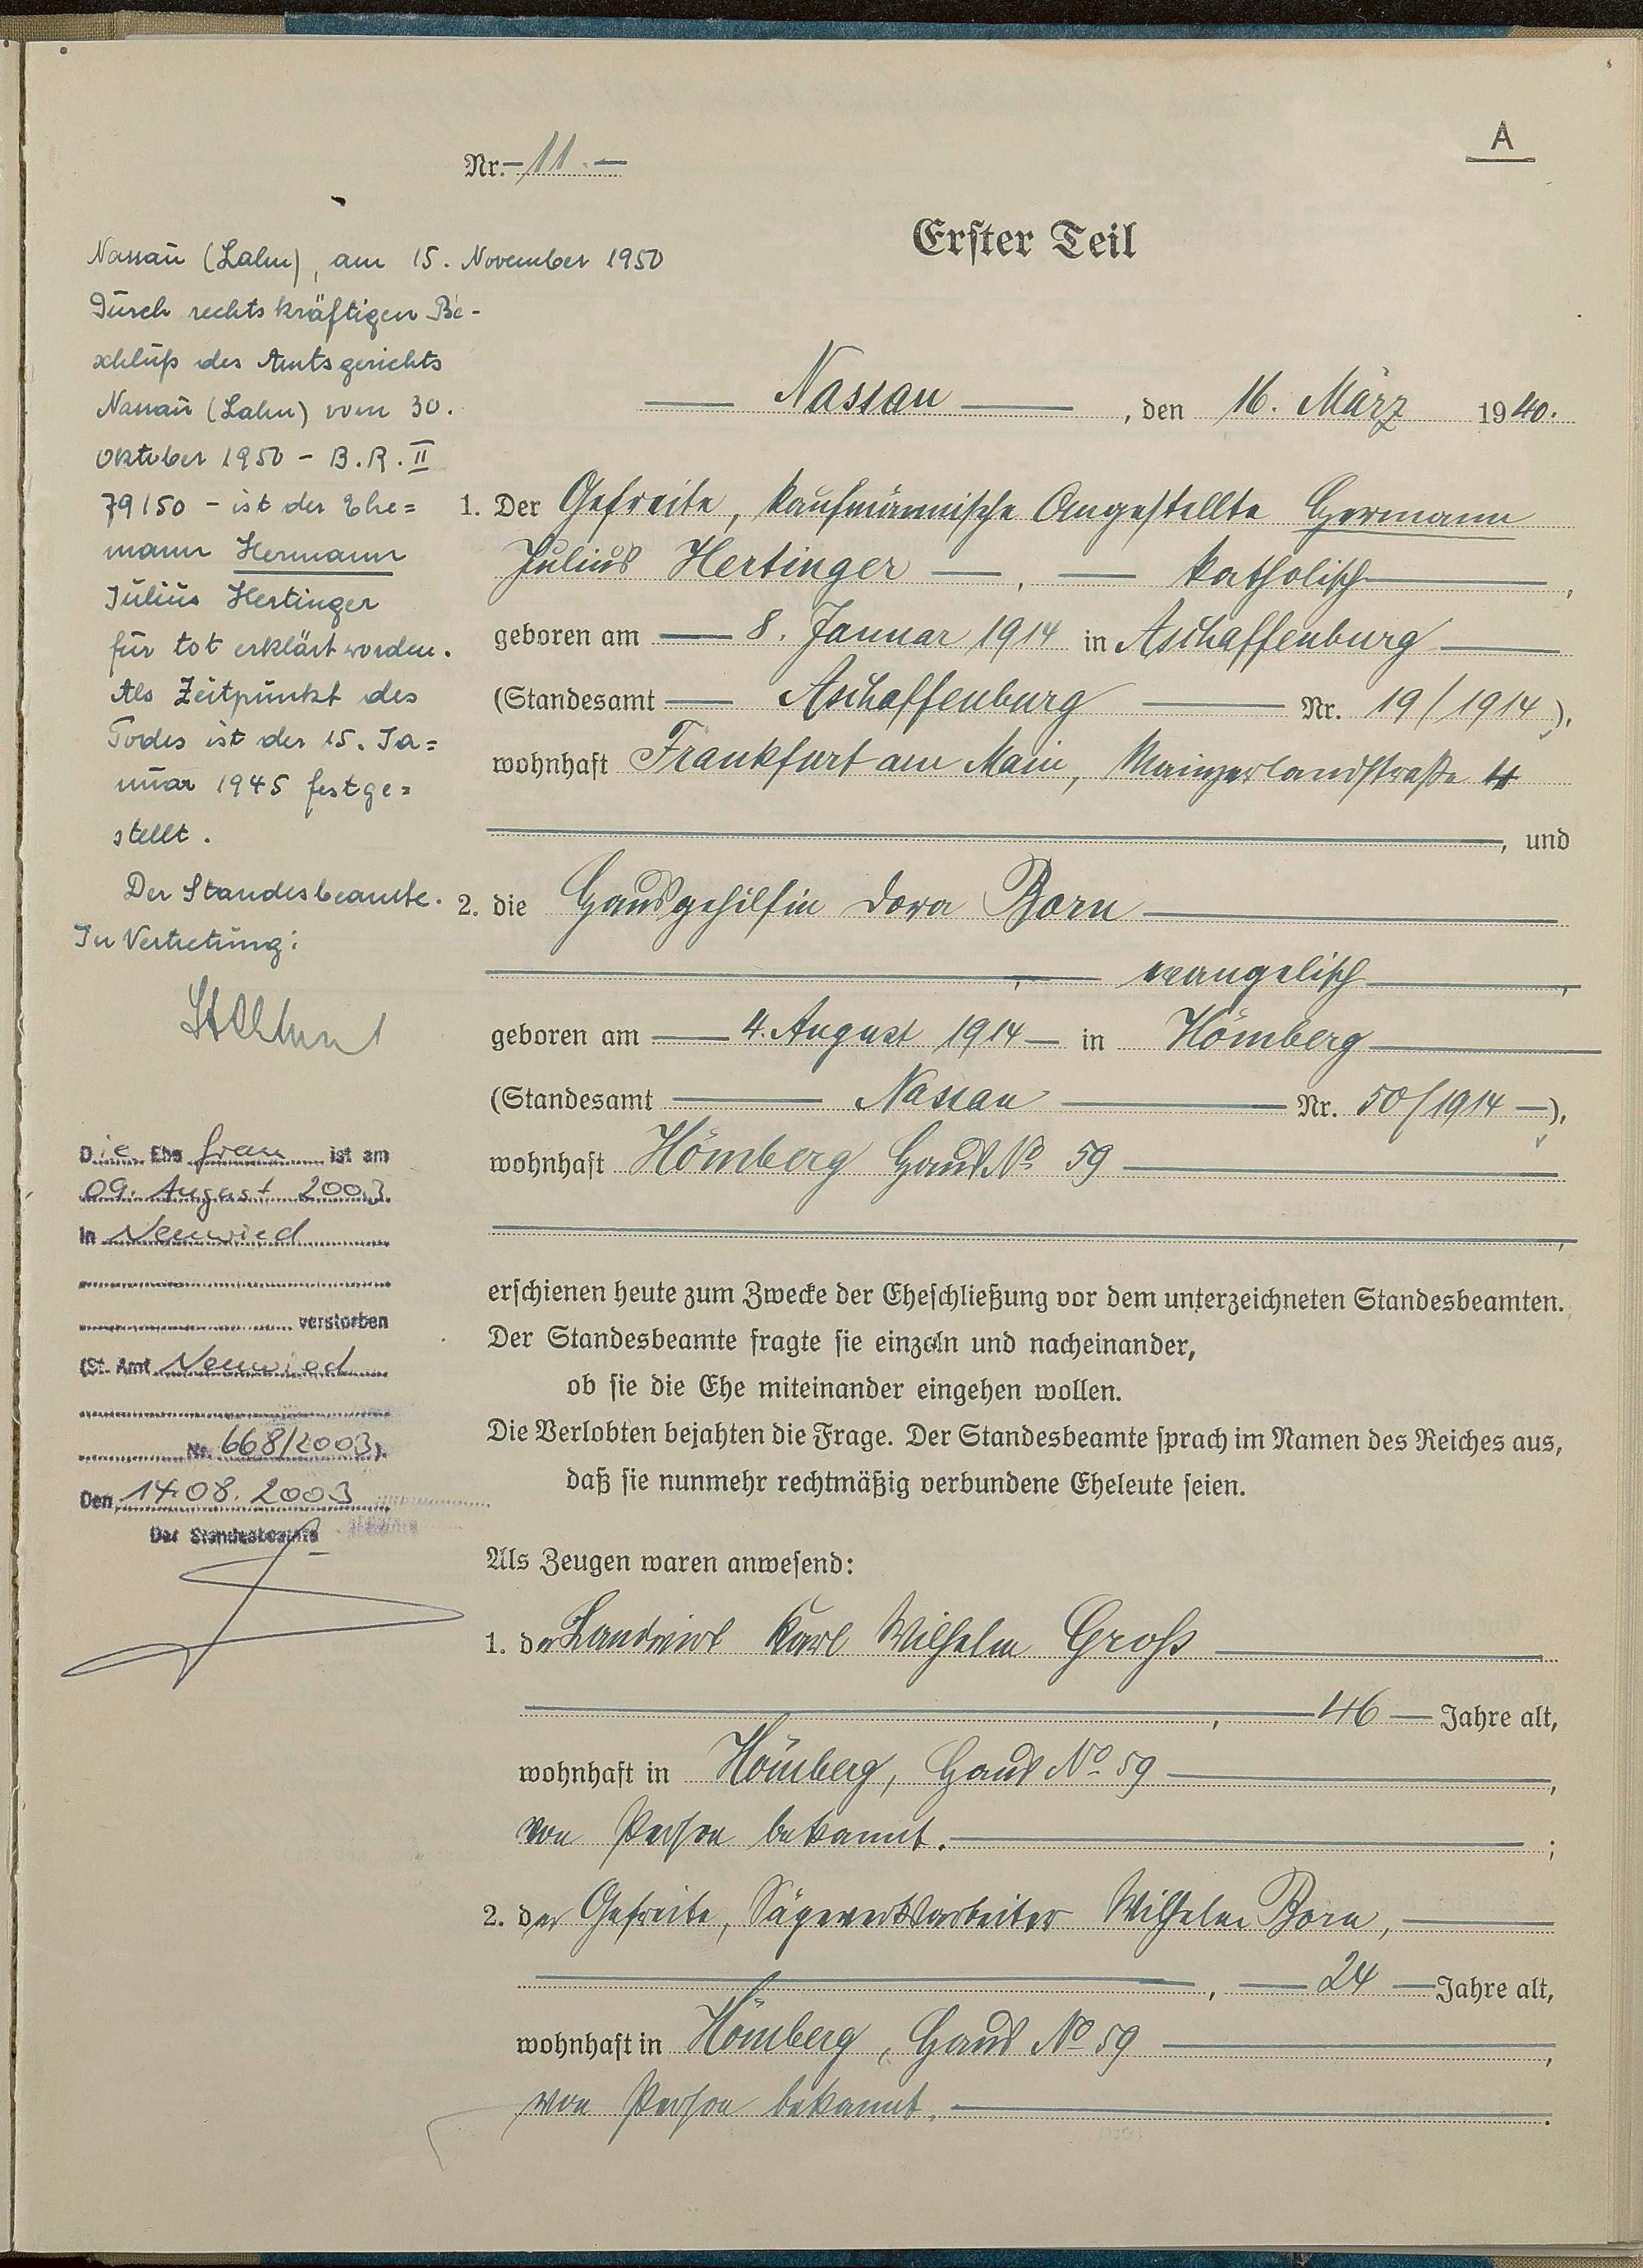 A
Nr. 11.
Erster Teil
Nassau, den 16. März 1940.
1. Der Gefreite, kaufmännische Angestellte Hermann
Julius Hertinger, katholisch,
geboren am 8. Januar 1914 in Aschaffenburg
(Standesamt Aschaffenburg Nr. 19/1914),
wohnhaft Frankfurt am Main, Mainzerlandstraße 4
, und
2. die Hausgehilfin Dora Born
, evangelisch,
geboren am 4. August 1914 in Hömberg
(Standesamt Nassau Nr. 50/1914),
wohnhaft Hömberg Haus No 59
,
erschienen heute zum Zwecke der Eheschließung vor dem unterzeichneten Standesbeamten.
Der Standesbeamte fragte sie einzeln und nacheinander,
ob sie die Ehe miteinander eingehen wollen.
Die Verlobten bejahten die Frage. Der Standesbeamte sprach im Namen des Reiches aus,
daß sie nunmehr rechtmäßig verbundene Eheleute seien.
Als Zeugen waren anwesend:
1. der Landwirt Karl Wilhelm Groß
, 46 Jahre alt,
wohnhaft in Hömberg, Haus No 59,
von Person bekannt.;
2. der Gefreite, Sägewerksarbeiter Wilhelm Born,
, 24 Jahre alt,
wohnhaft in Hömberg, Haus No 59,
von Person bekannt.
Nassau (Lahn), am 15. November 1950
Durch rechtskräftigen Be-
schluß des Amtsgerichts
Nassau (Lahn) vom 30.
Oktober 1950 - B.R. II
79/50 - ist der Ehe=
mann Hermann
Julius Hertinger
für tot erklärt worden.
Als Zeitpunkt des
Todes ist der 15. Ja=
nuar 1945 festge=
stellt.
Der Standesbeamte.
In Vertretung:
Die Ehefrau ist am
09. August 2003
in Neuwied
verstorben
(St. Amt Neuwied
Nr. 668/2003).
Den 14.08.2003
Der Standesbeamte